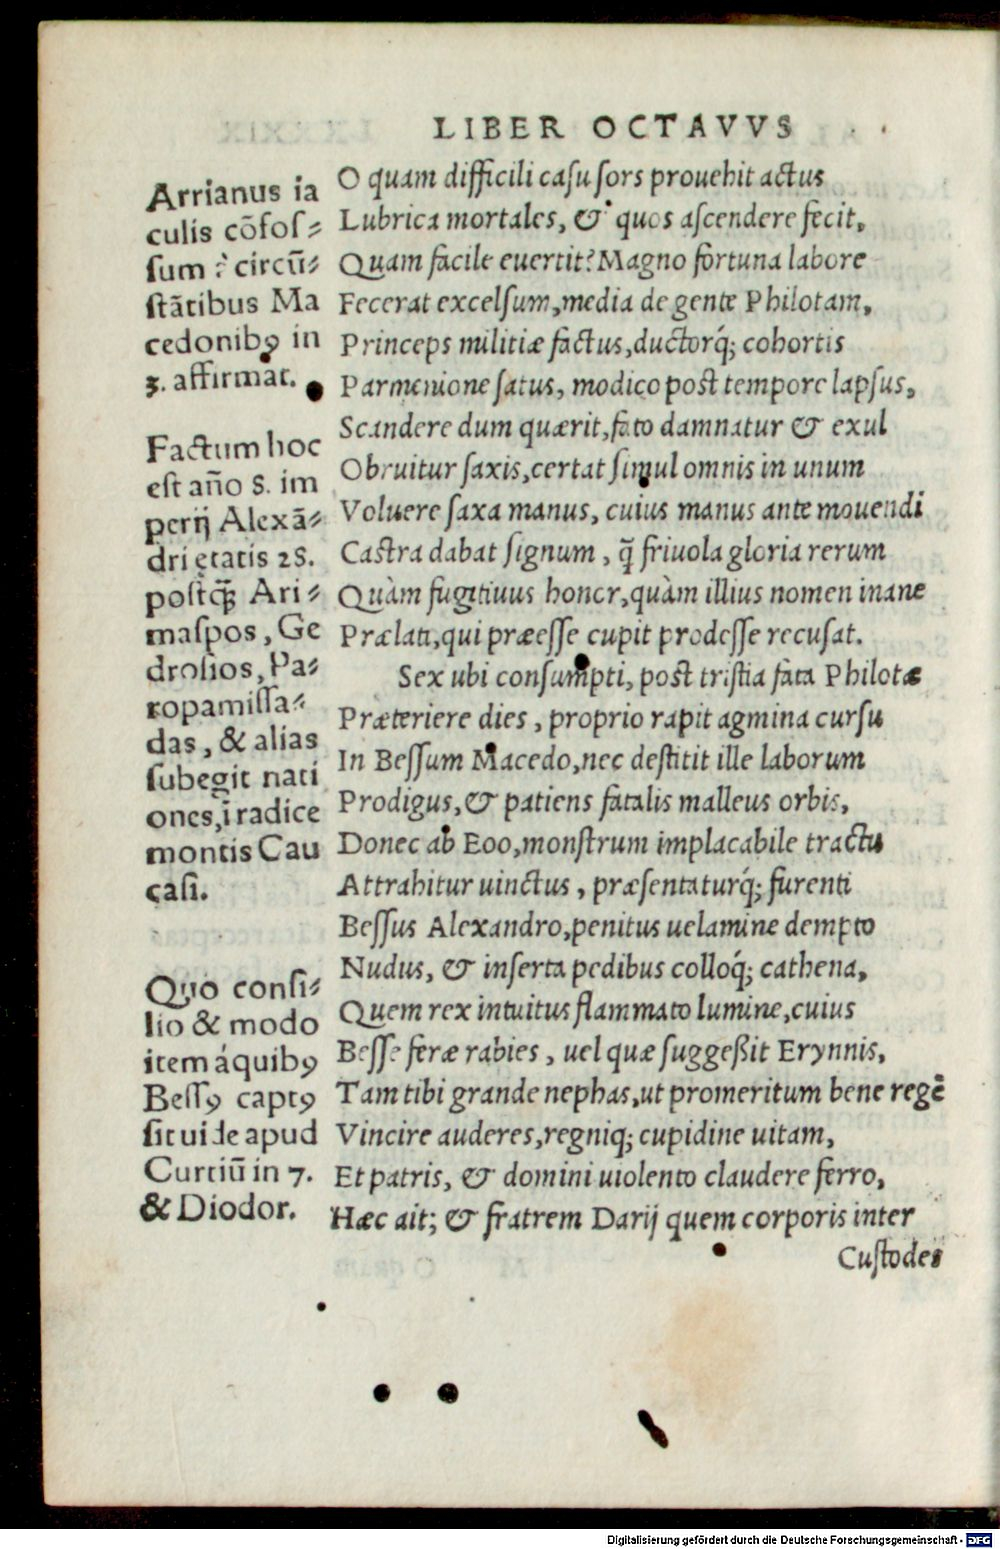 LIBER OCTAVVS
Arrianus ia
culis cõfos⸗
sum ĩ circũ⸗
stãtibus Ma
cedonibꝰ in
3. affirmat.
Factum hoc
est año 8. im
perij Alexã⸗
dri ętatis 28.
postq̃ Ari⸗
maspos, Ge
drosios, Pa⸗
ropamissa⸗
das, & alias
subegit nati
ones, ĩ radice
montis Cau
casi.
Quo consi⸗
lio & modo
item á quibꝰ
Bessꝰ captꝰ
sit uide apud
Curtiũ in 7.
& Diodor.
O quam difficili casu sors prouehit actus
Lubrica mortales, & quos ascendere fecit,
Quam facile euertit? Magno fortuna labore
Fecerat excelsum, media de gente Philotam,
Princeps militiæ factus, ductorq́; cohortis
Parmenione satus, modico post tempore lapsus,
Scandere dum quærit, fato damnatur & exul
Obruitur saxis, certat simul omnis in unum
Voluere saxa manus, cuius manus ante mouendi
Castra dabat signum, q̃ friuola gloria rerum
Quàm fugitiuus honor, quàm illius nomen inane
Prælati, qui præesse cupit prodesse recusat.
Sex ubi consumpti, post tristia fata Philotæ
Præteriere dies, proprio rapit agmina cursu
In Bessum Macedo, nec destitit ille laborum
Prodigus, & patiens fatalis malleus orbis,
Donec ab Eoo, monstrum implacabile tractu
Attrahitur uinctus, præsentaturq́; furenti
Bessus Alexandro, penitus uelamine dempto
Nudus, & inserta pedibus colloq́; cathena,
Quem rex intuitus flammato lumine, cuius
Besse feræ rabies, uel quæ suggeßit Erynnis,
Tam tibi grande nephas, ut promeritum bene regẽ
Vincire auderes, regniq́; cupidine uitam,
Et patris, & domini uiolento claudere ferro,
Hæc ait; & fratrem Darij quem corporis inter
Custodes
Digitalisierung gefördert durch die Deutsche Forschungsgemeinschaft - DFG